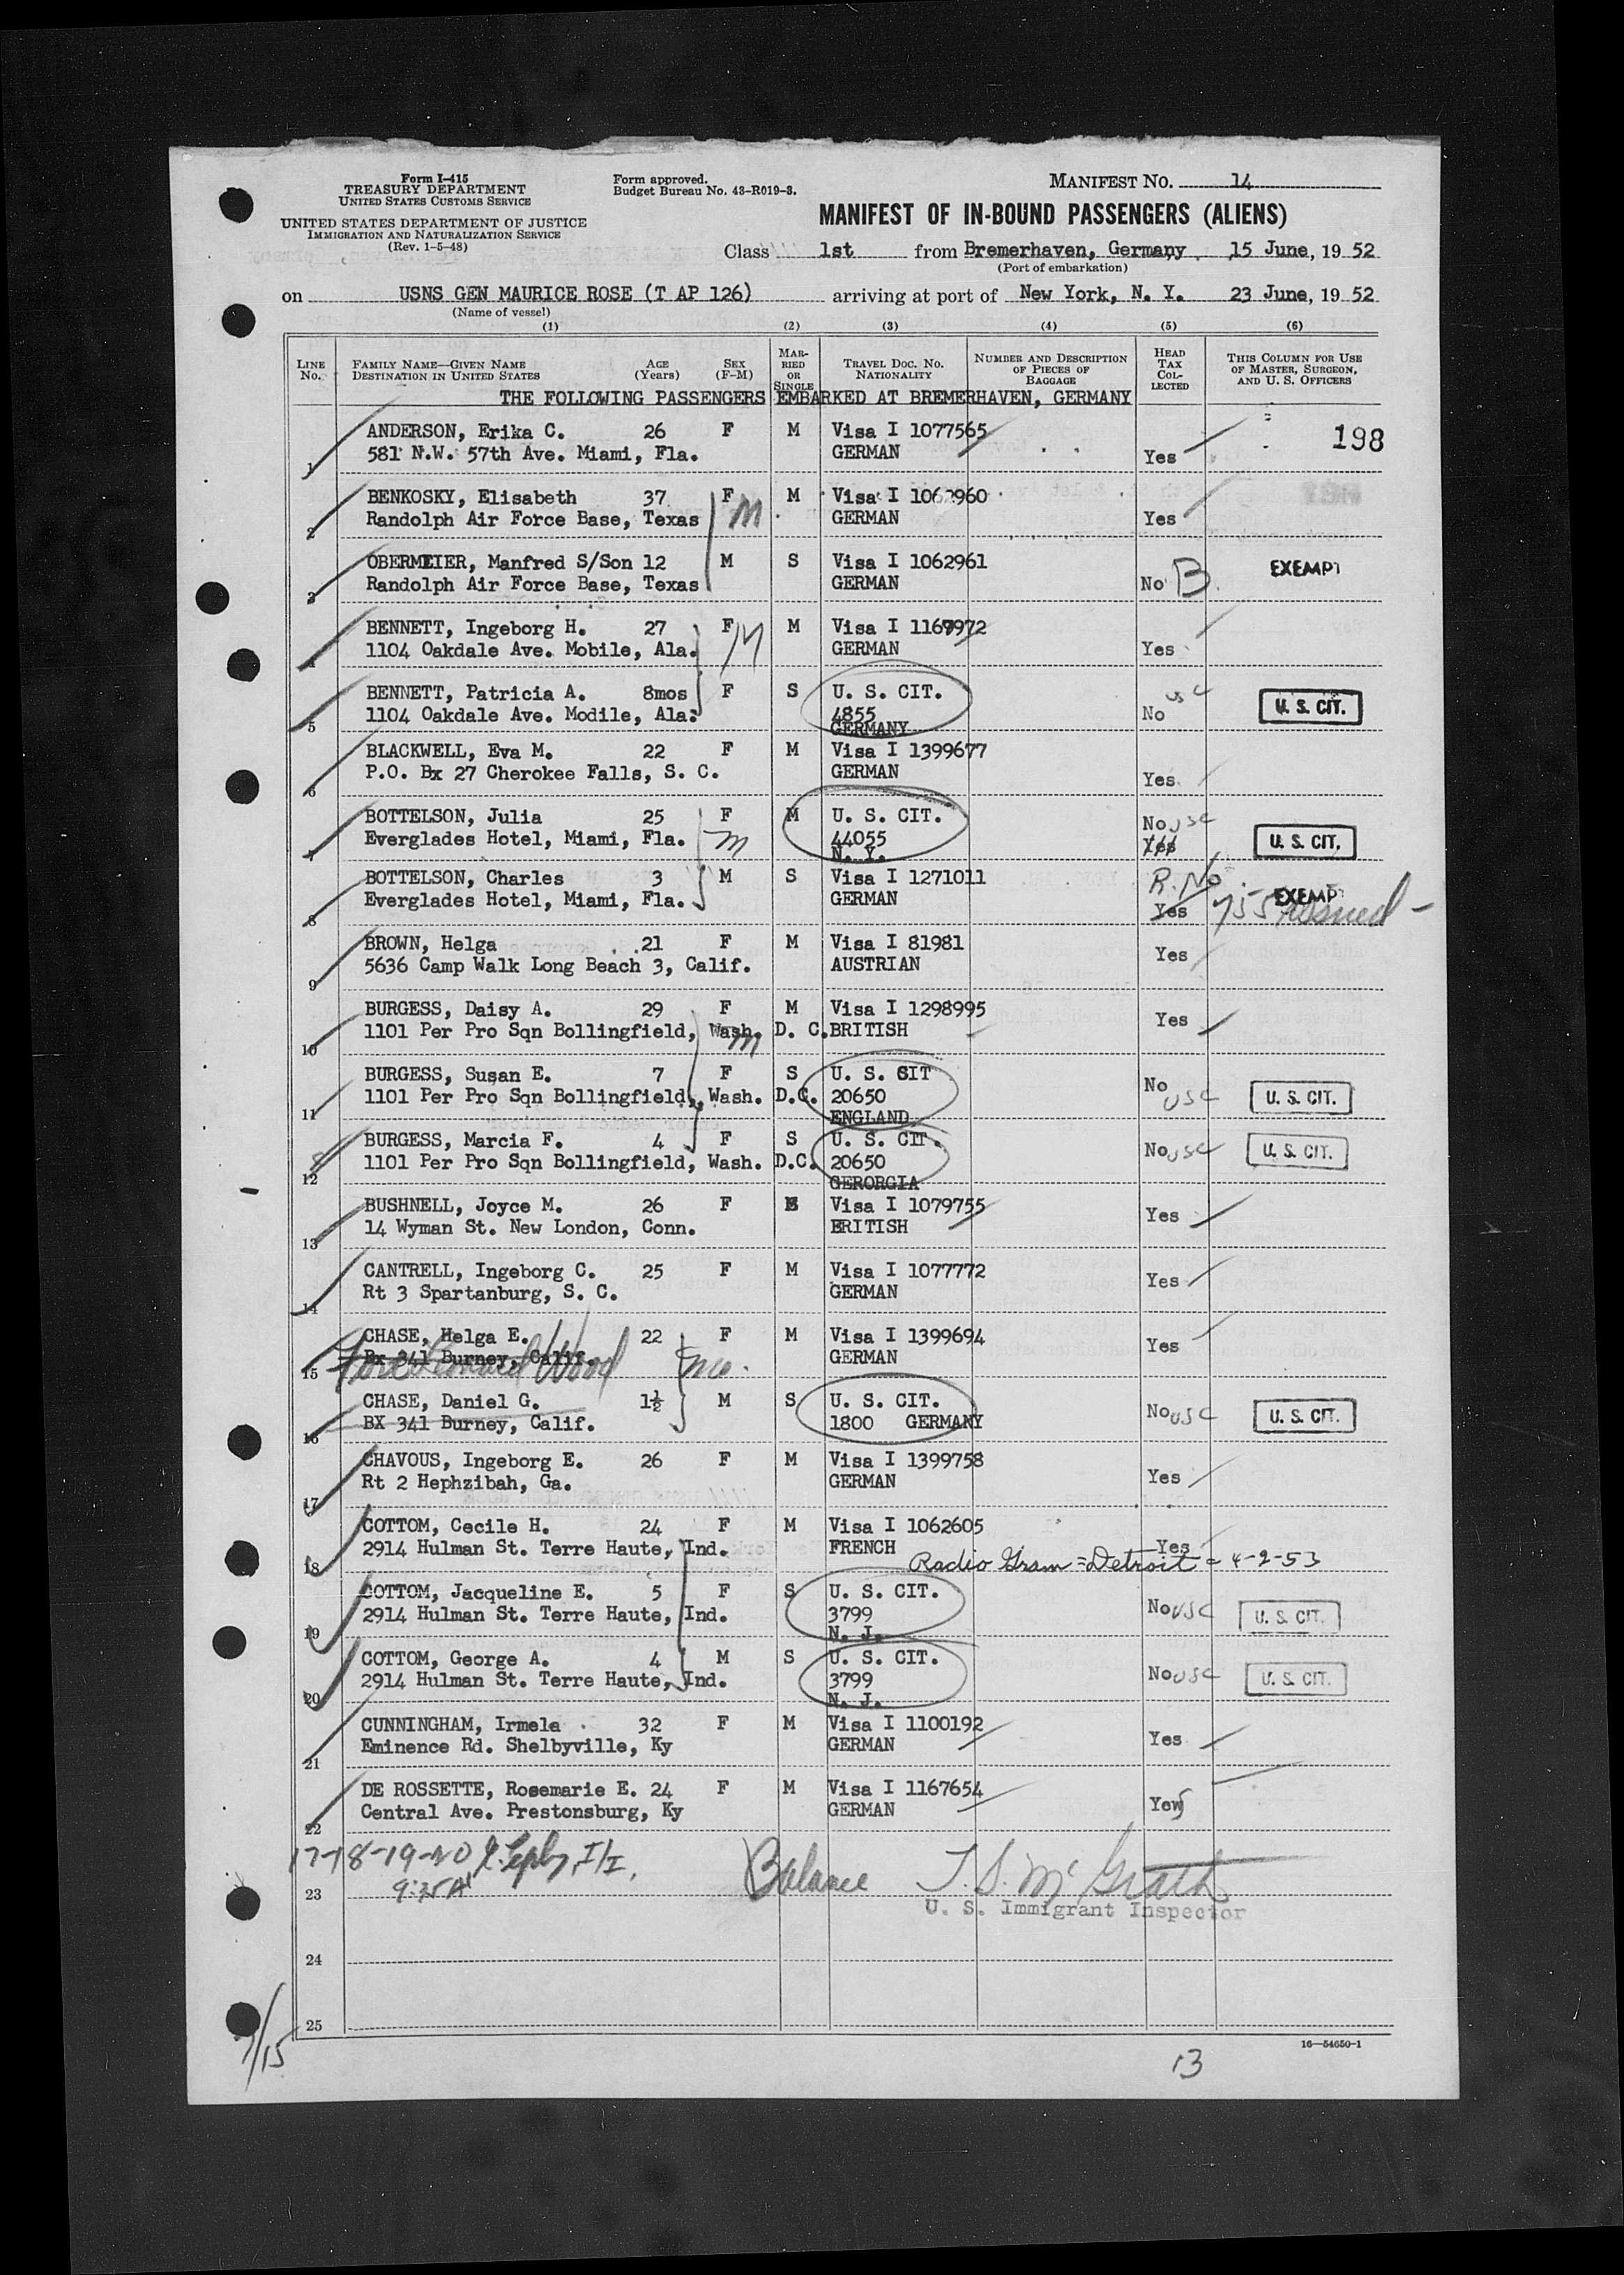 Form I-415
TREASURY DEPARTMENT
UNITED STATES CUSTOMS SERVICE
UNITED STATES DEPARTMENT OF JUSTICE
IMMIGRATION AND NATURALIZATION SERVICE
(Rev. 1-5-48)
Form approved.
Budget Bureau No. 43-R019-3.
MANIFEST NO. 14
MANIFEST OF IN-BOUND PASSENGERS (ALIENS)
Class 1st from Bremerhaven, Germany 15 June, 19 52
(Port of embarkation)
on USNS GEN MAURICE ROSE (T AP 126) arriving at port of New York, N. Y. 23 June, 19 52
(Name of vessel)
(1) (2) (3) (4) (5) (6)
LINE No. FAMILY NAME—GIVEN NAME DESTINATION IN UNITED STATES AGE (Years) SEX (F-M) MARRIED OR SINGLE TRAVEL DOC. NO. NATIONALITY NUMBER AND DESCRIPTION OF PIECES OF BAGGAGE HEAD TAX COLLECTED THIS COLUMN FOR USE OF MASTER, SURGEON, AND U. S. OFFICERS
THE FOLLOWING PASSENGERS EMBARKED AT BREMERHAVEN, GERMANY
ANDERSON, Erika C. 26 F M Visa I 1077565 198
1 581 N.W. 57th Ave. Miami, Fla. GERMAN Yes
BENKOSKY, Elisabeth 37 F M M Visa I 1062960
2 Randolph Air Force Base, Texas GERMAN Yes
OBERMEIER, Manfred S/Son 12 M S Visa I 1062961 EXEMPT
3 Randolph Air Force Base, Texas GERMAN No B
BENNETT, Ingeborg H. 27 F M M Visa I 1169972
4 1104 Oakdale Ave. Mobile, Ala. GERMAN Yes
BENNETT, Patricia A. 8mos F S U. S. CIT. usc U. S. CIT.
5 1104 Oakdale Ave. Modile, Ala. 4855 No
GERMANY
BLACKWELL, Eva M. 22 F M Visa I 1399677
6 P.O. Bx 27 Cherokee Falls, S. C. GERMAN Yes
BOTTELSON, Julia 25 F M U. S. CIT. No usc
7 Everglades Hotel, Miami, Fla. m 44055 Yes U. S. CIT.
N. Y.
BOTTELSON, Charles 3 M S Visa I 1271011 R. No EXEMPT
8 Everglades Hotel, Miami, Fla. GERMAN Yes issued
BROWN, Helga 21 F M Visa I 81981 Yes
9 5636 Camp Walk Long Beach 3, Calif. AUSTRIAN
BURGESS, Daisy A. 29 F M Visa I 1298995 Yes
10 1101 Per Pro Sqn Bollingfield, Wash. D. C. BRITISH
m
BURGESS, Susan E. 7 F S U. S. CIT No usc
11 1101 Per Pro Sqn Bollingfield, Wash. D.C. 20650 U. S. CIT.
ENGLAND
BURGESS, Marcia F. 4 F S U. S. CIT. No usc U. S. CIT.
12 1101 Per Pro Sqn Bollingfield, Wash. D.C. 20650
GERORGIA
BUSHNELL, Joyce M. 26 F Visa I 1079755 Yes
13 14 Wyman St. New London, Conn. BRITISH
CANTRELL, Ingeborg C. 25 F M Visa I 1077772 Yes
14 Rt 3 Spartanburg, S. C. GERMAN
CHASE, Helga E. 22 F M Visa I 1399694 Yes
15 Bx 341 Burney, Calif. GERMAN
Fort Leonard Wood Mo.
CHASE, Daniel G. 1½ M S U. S. CIT. No usc U. S. CIT.
16 BX 341 Burney, Calif. 1800 GERMANY
CHAVOUS, Ingeborg E. 26 F M Visa I 1399758 Yes
17 Rt 2 Hephzibah, Ga. GERMAN
COTTOM, Cecile H. 24 F M Visa I 1062605 Yes
18 2914 Hulman St. Terre Haute, Ind. FRENCH Radio Gram = Detroit = 4-2-53
COTTOM, Jacqueline E. 5 F S U. S. CIT. No usc U. S. CIT.
19 2914 Hulman St. Terre Haute, Ind. 3799
N. J.
COTTOM, George A. 4 M S U. S. CIT. No usc U. S. CIT.
20 2914 Hulman St. Terre Haute, Ind. 3799
N. J.
CUNNINGHAM, Irmela 32 F M Visa I 1100192 Yes
21 Eminence Rd. Shelbyville, Ky GERMAN
DE ROSSETTE, Rosemarie E. 24 F M Visa I 1167654 Yes
22 Central Ave. Prestonsburg, Ky GERMAN
17-18-19-20
Balance T. S. McGrath
U. S. Immigrant Inspector
23
24
25
16—54650-1
7/15
13